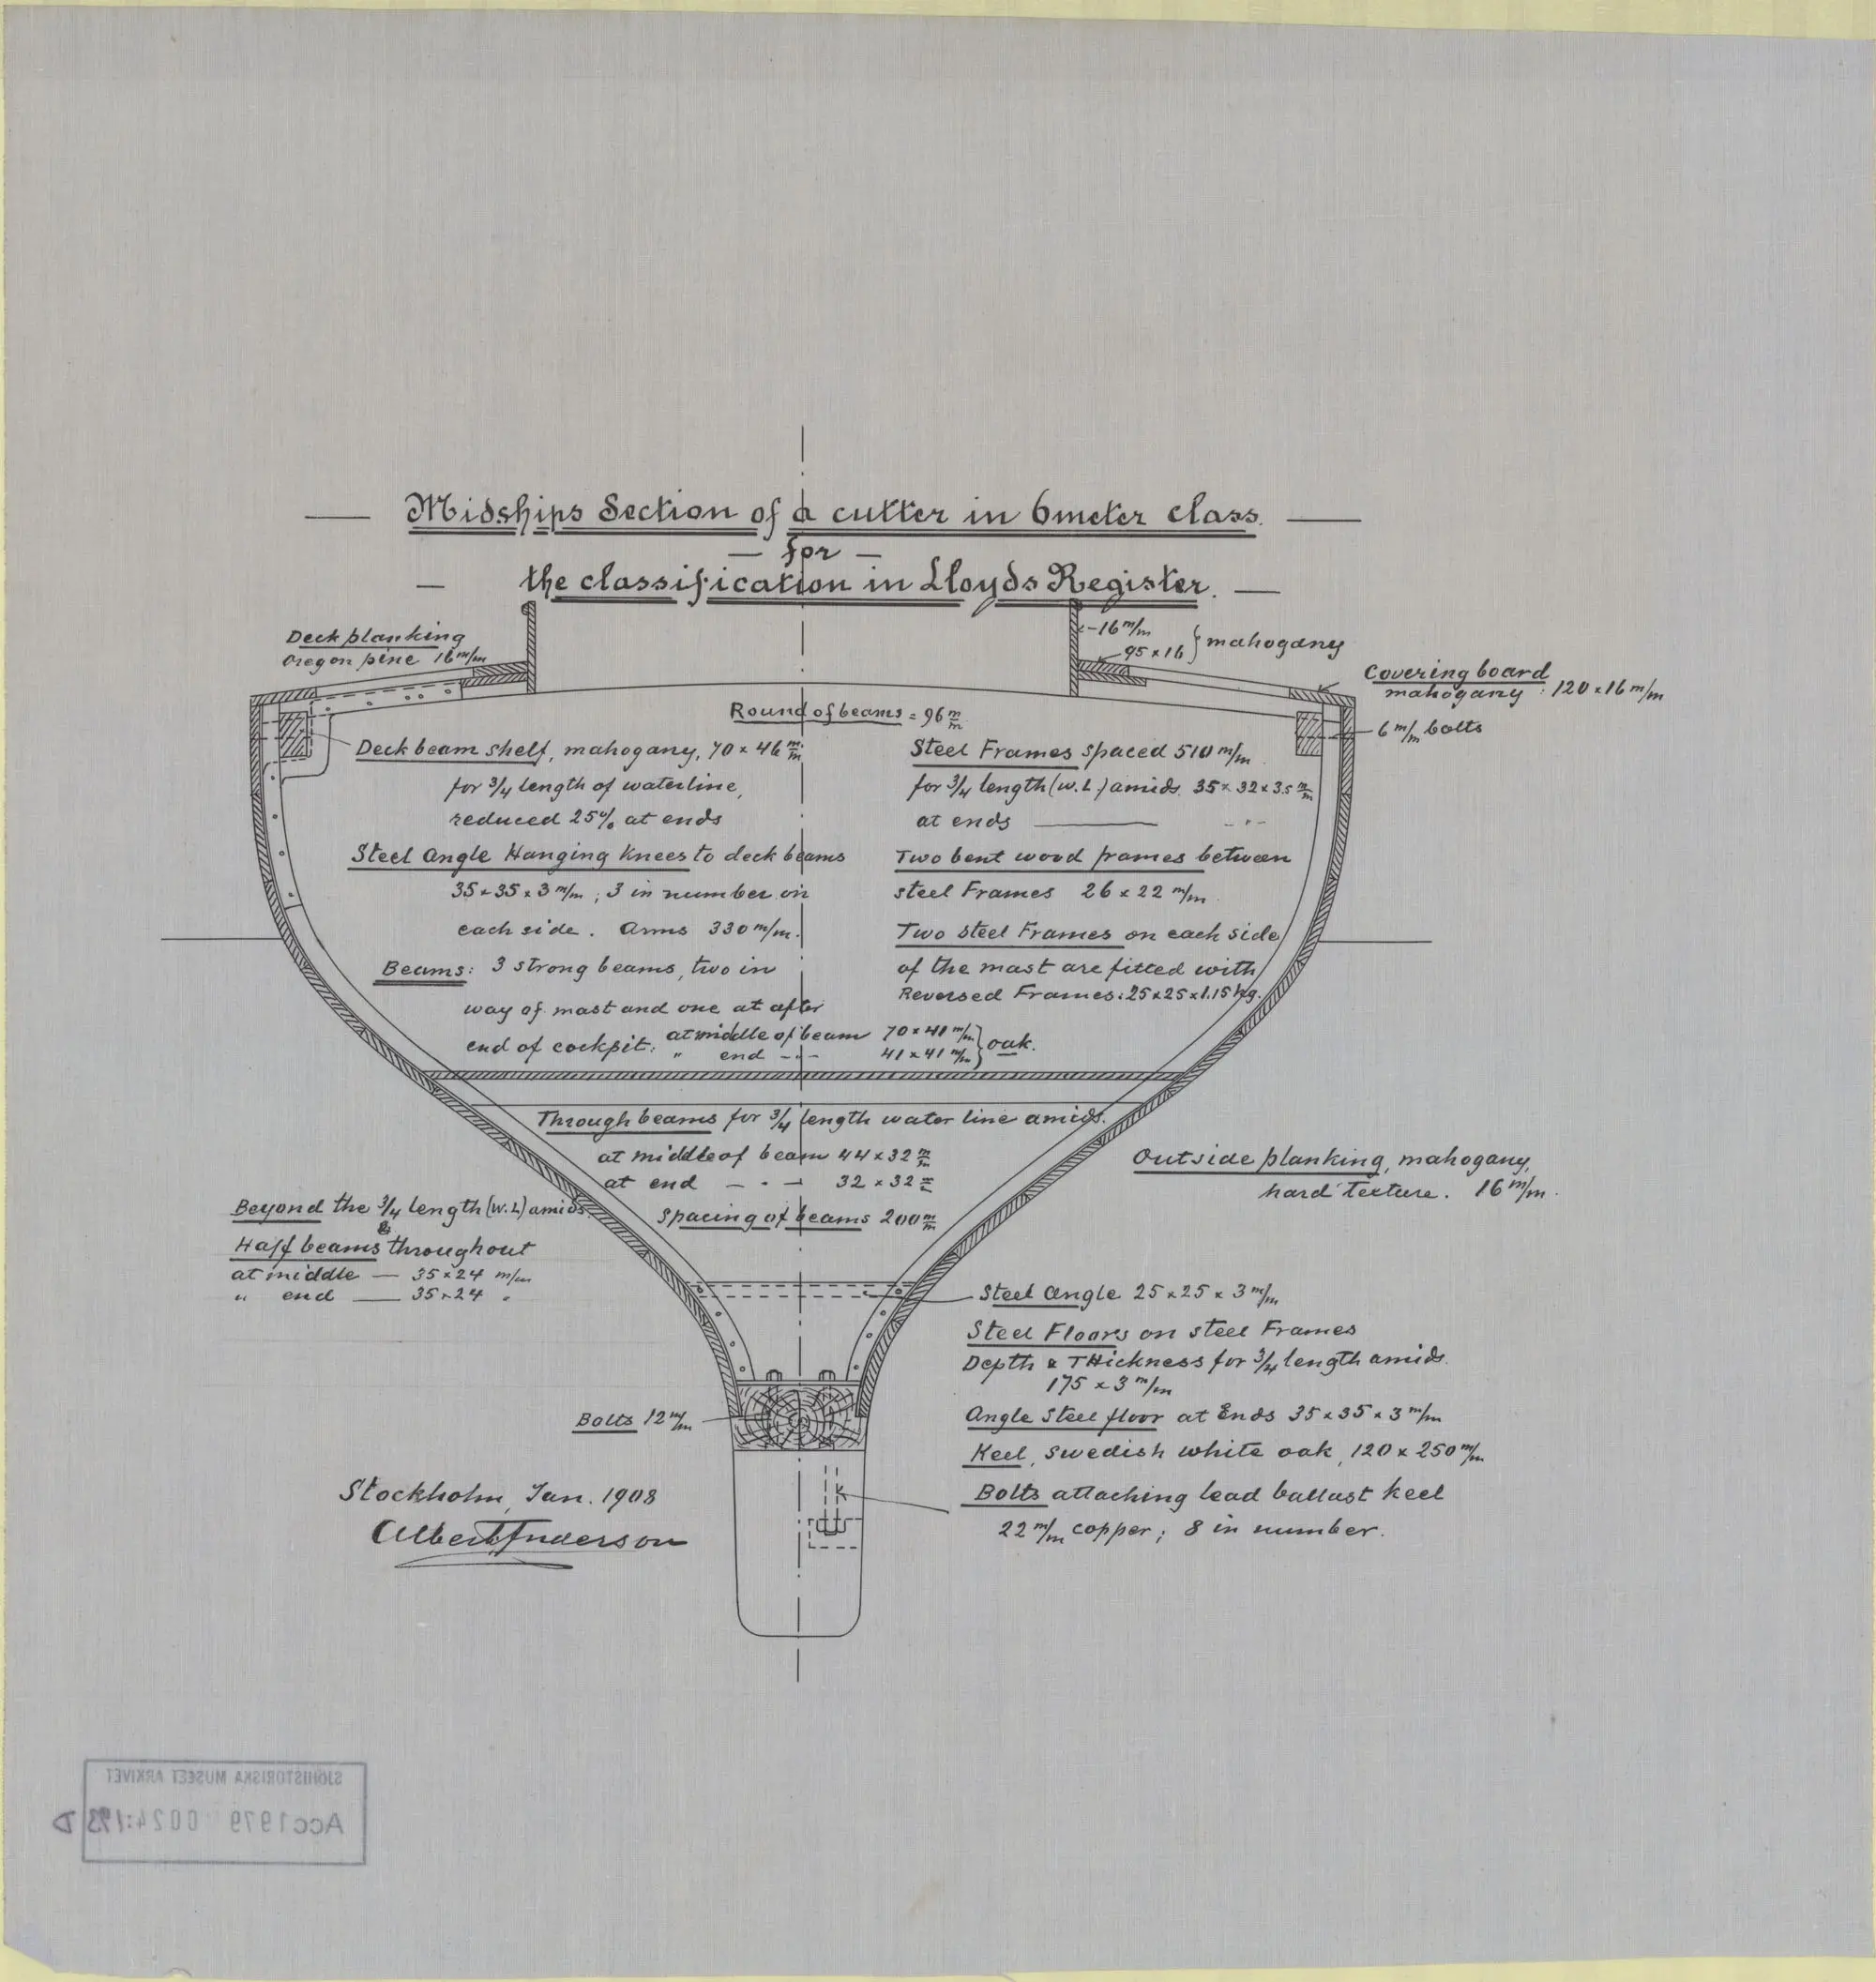 Midships Section of a cutter in 6meter class.
— for —
the classification in Lloyds Register.
Deck planking
Oregon pine 16 m/m
16 m/m
95 x 16 } mahogany
Covering board
mahogany : 120 x 16 m/m
6 m/m bolts
Round of beams = 96 m/m
Deck beam shelf, mahogany, 70 x 46 m/m
for 3/4 length of waterline,
reduced 25% at ends
Steel Angle Hanging Knees to deck beams
35 x 35 x 3 m/m ; 3 in number on
each side. Arms 330 m/m.
Beams: 3 strong beams, two in
way of mast and one at after
end of cockpit: at middle of beam 70 x 41 m/m
" end -"- 41 x 41 m/m } oak.
Steel Frames spaced 510 m/m
for 3/4 length (W.L.) amids. 35 x 32 x 3.5 m/m
at ends —— -"-
Two bent wood frames between
steel Frames 26 x 22 m/m
Two Steel Frames on each side
of the mast are fitted with
Reversed Frames: 25 x 25 x 1.15 kg.
Through beams for 3/4 length water line amids.
at middle of beam 44 x 32 m/m
at end - " - 32 x 32 m/m
Spacing of beams 200 m/m
Outside planking, mahogany,
hard texture. 16 m/m.
Beyond the 3/4 length (W.L) amids.
&
Half beams throughout
at middle — 35 x 24 m/m
" end — 35 x 24 "
Steel Angle 25 x 25 x 3 m/m
Steel Floors on steel Frames
Depth & THickness for 3/4 length amids.
175 x 3 m/m
Angle Steel floor at Ends 35 x 35 x 3 m/m
Keel, Swedish white oak, 120 x 250 m/m
Bolts attaching lead ballast keel
22 m/m copper; 8 in number.
Bolts 12 m/m
Stockholm, Jan. 1908
Albert Anderson
SJÖHISTORISKA MUSEET ARKIVET
Acc1979 0024:193 D